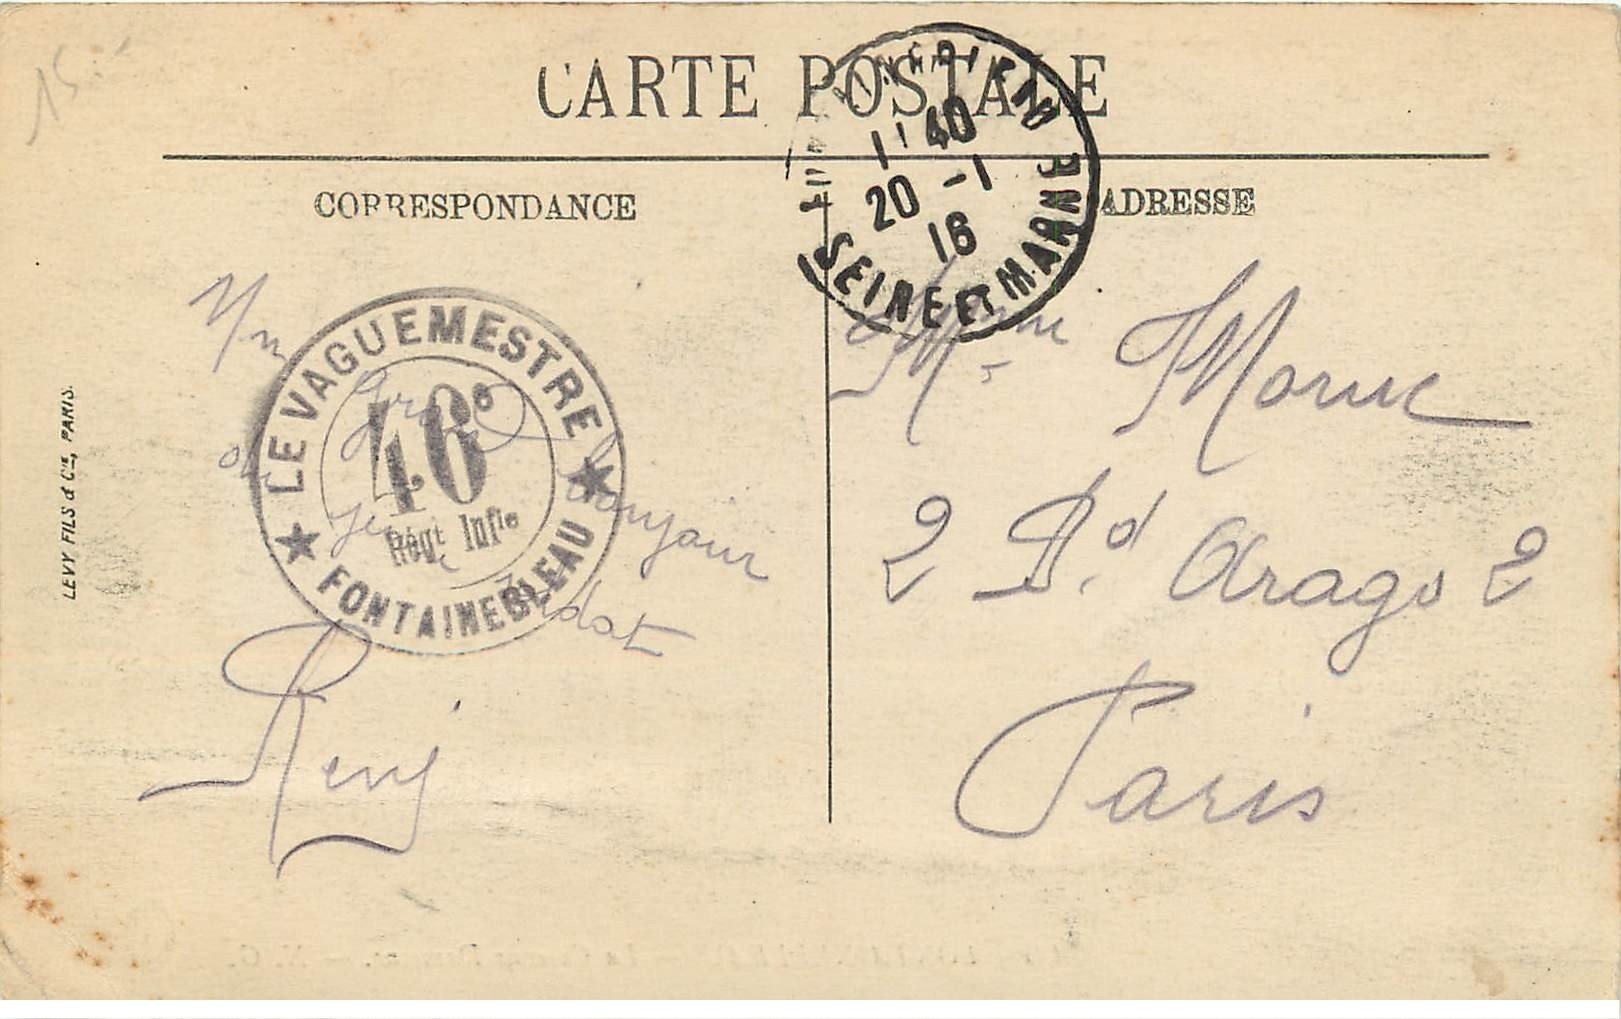 15.-
CARTE POSTALE
CORRESPONDANCE
ADRESSE
1' 40
20 -1
16
SEINE ET MARNE
LE VAGUEMESTRE
46e
Régt Infie
FONTAINEBLEAU
LEVY FILS & Cie, PARIS.
Un
Gros bonjour
du jeune soldat
René
Mme
Mr Morue
2 Bd Arago 2
Paris